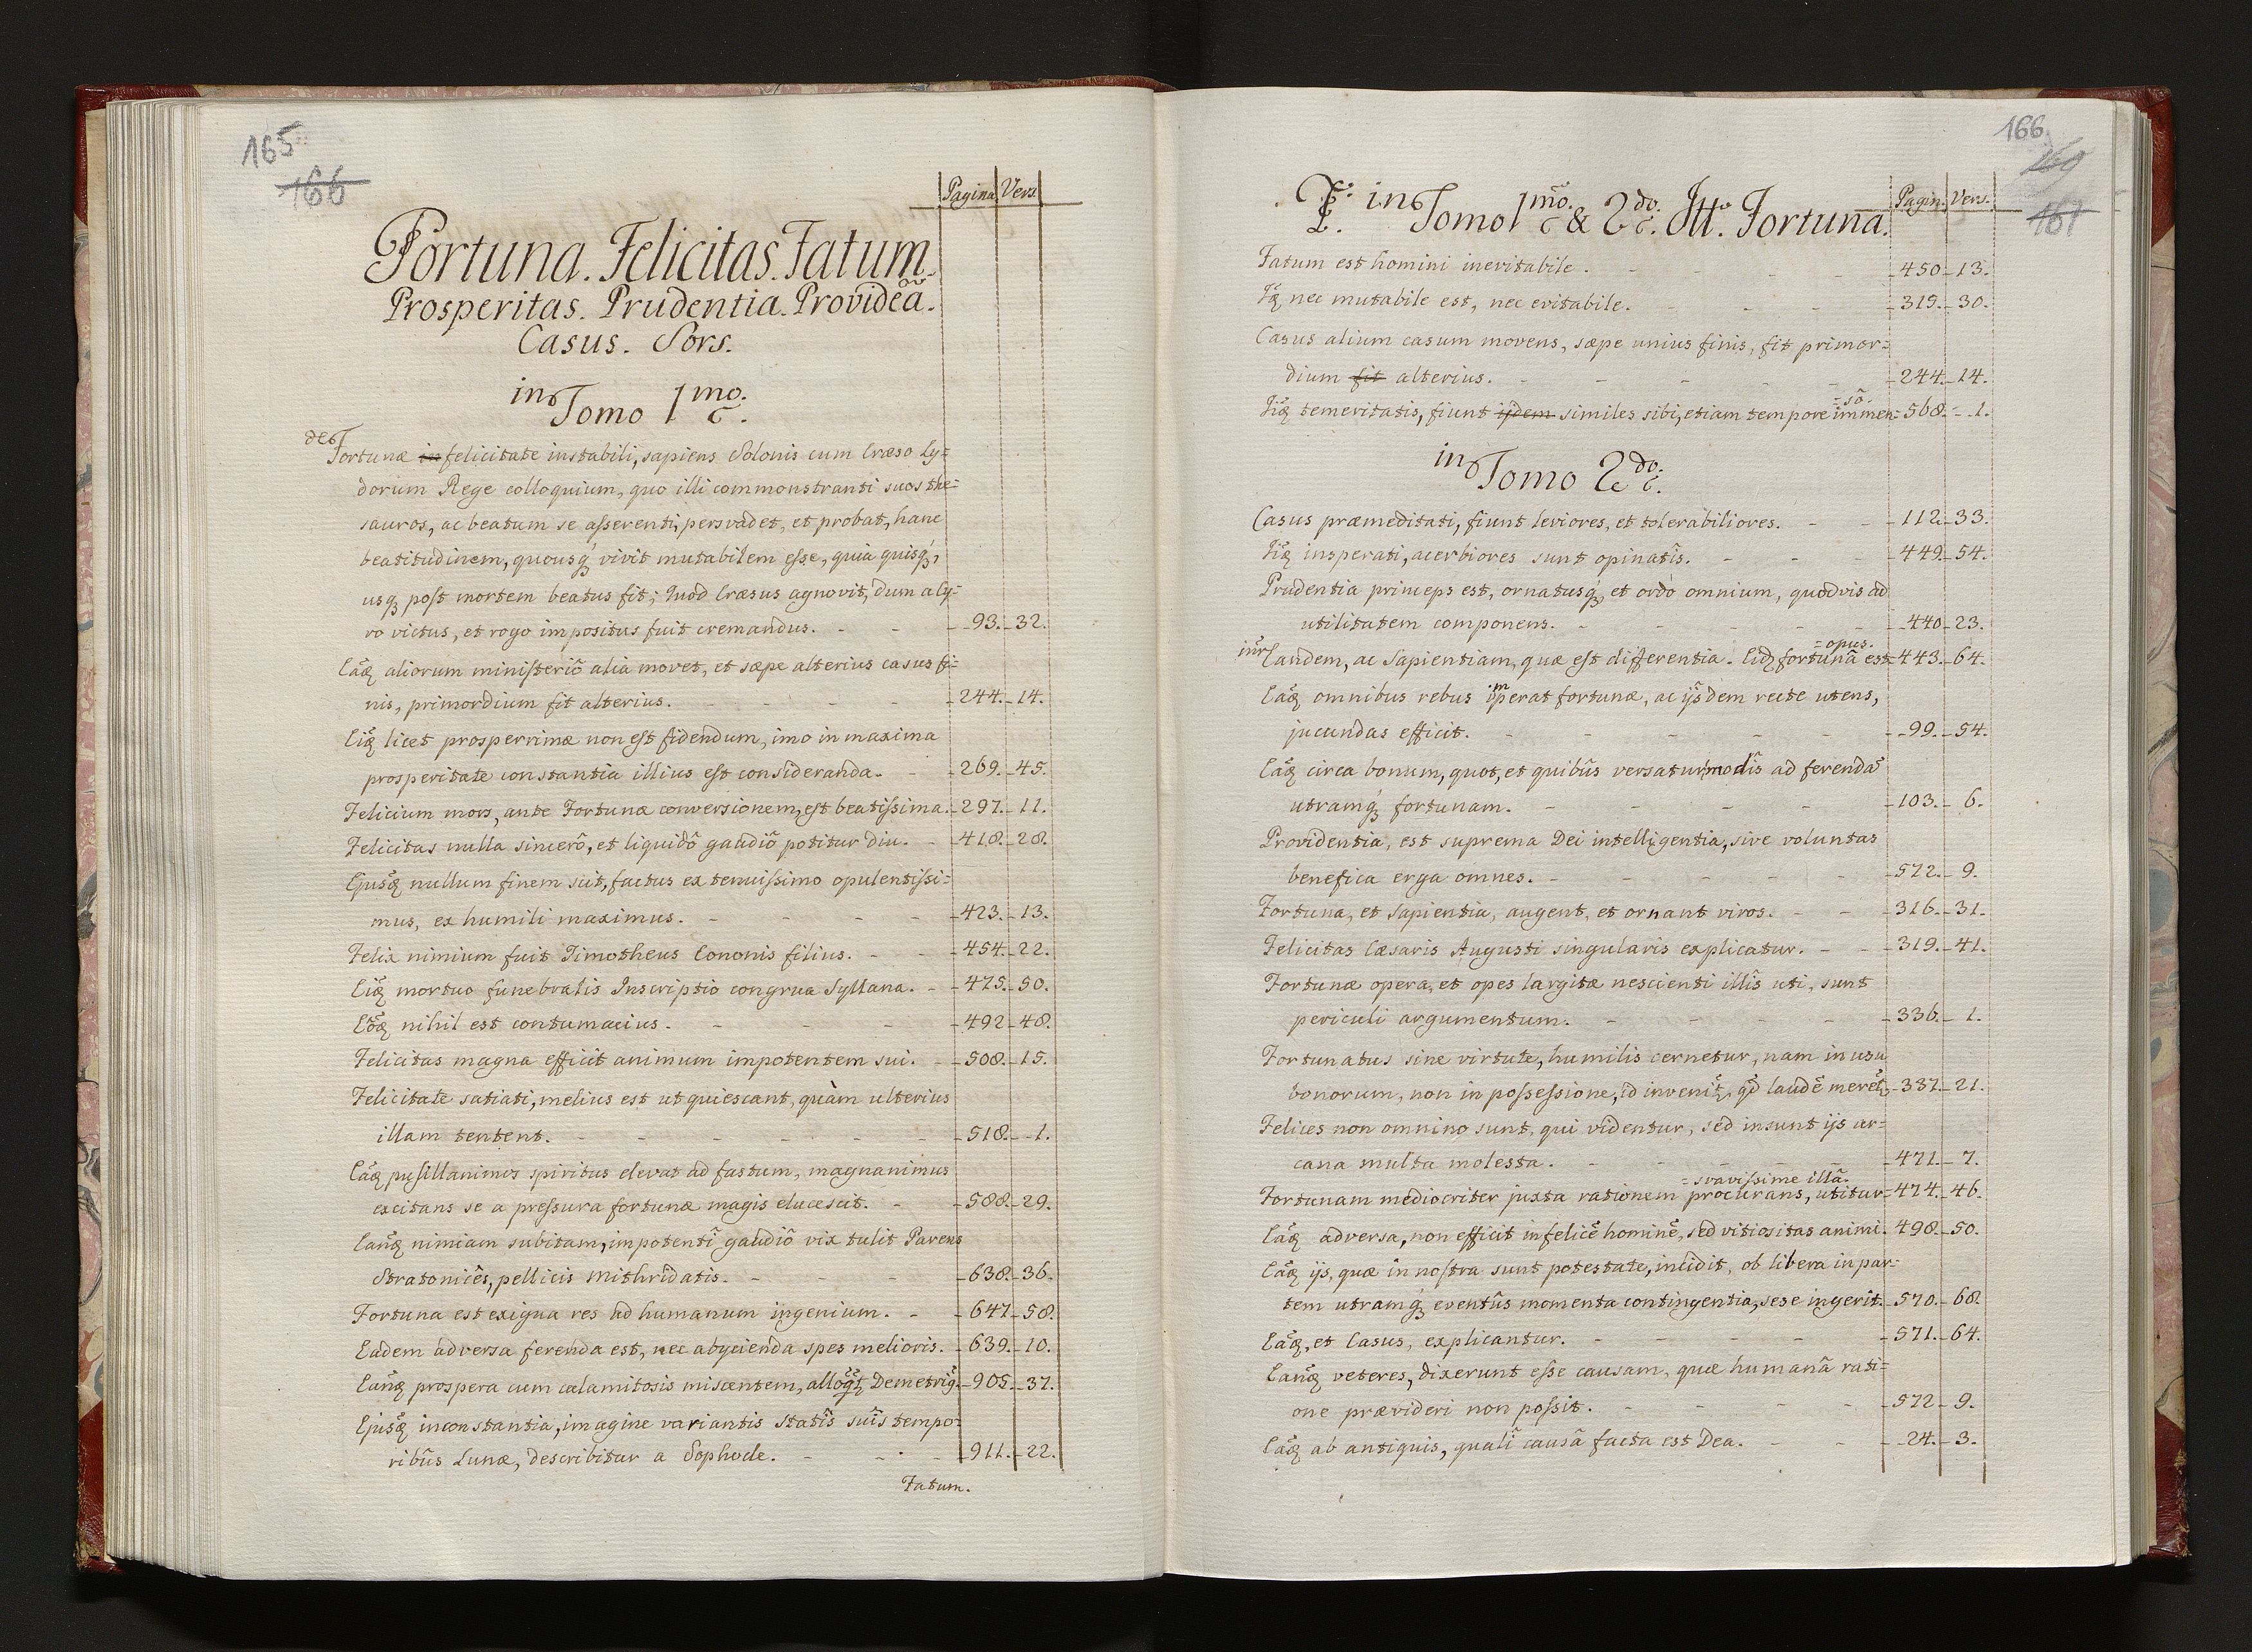 165
166
Pagina Vers.
Fortuna. Felicitas. Fatum.
Prosperitas. Prudentia. Providẽa.
Casus. Sors.
in Tomo 1mo.
de Fortunæ in felicitate instabili, sapiens Solonis cum Cræso Ly=
dorum Rege colloquium, quo illi commonstranti suos the=
sauros, ac beatum se asserenti, persvadet, et probat, hanc
beatitudinem, quousq́ vivit mutabilem esse, quia quisq́,
usq post mortem beatus fit; Quod Cræsus agnovit, dum a Cy=
ro victus, et rogo impositus fuit cremandus. - - 93. 32.
Eãq aliorum ministeriô alia movet, et sæpe alterius casus fi=
nis, primordium fit alterius. - - - 244. 14.
Eiq licet prosperrimæ non est fidendum, imo in maxima
prosperitate constantia illius est consideranda. - 269. 45.
Felicium mors, ante Fortunæ conversionem, est beatissima. 297. 11.
Felicitas nulla sincerô, et liquidô gaudiô potitur diu. - 418. 28.
Ejusq nullum finem scit, factus ex tenuissimo opulentissi=
mus, ex humili maximus. - - - 423. 13.
Felix nimium fuit Timotheus Cononis filius. - 454. 22.
Eiq mortuo funebralis Inscriptio congrua Syllana. - 475. 50.
Eôq nihil est contumacius. - - - 492. 48.
Felicitas magna efficit animum impotentem sui. - 508. 15.
Felicitate satiati, melius est ut quiescant, quàm ulterius
illam tentent. - - - - - 518. 1.
Eãq pusillanimes spiritus elevat ad fastum, magnanimus
excitans se a pressura fortunæ magis elucescit. - 588. 29.
Eanq nimiam subitam, impotentî gaudiô vix tulit Parens
Stratonicês, pellicis Mithridatis. - - - 638. 36.
Fortuna est exigua res ad humanum ingenium. - 647. 58.
Eadem adversa ferenda est, nec abjicienda spes melioris. 639. 10.
Eanq prospera cum calamitosis miscentem, alloqt, Demetriq. 905. 37.
Ejusq inconstantia, imagine variantis statûs suîs tempo=
ribûs Lunæ, describitur a Sophocle. - - - 911. 22.
Fatum.
166.
169
167
F. in Tomo 1mo. & 2do. Ltt. Fortuna. Pagin. Vers.
Fatum est homini inevitabile. - - - - 450. 13.
Iq nec mutabile est, nec evitabile. - - - 319. 30.
Casus alium casum movens, sæpe unius finis, fit primor=
dium fit alterius. - - - - - 244. 14.
=sô.
Iiq temeritatis, fiunt ijdem similes sibi, etiam tempore immen= 568. 1.
in Tomo 2do.
Casus præmeditati, fiunt leviores, et tolerabiliores. - - 112. 33.
Iiq insperati, acerbiores sunt opinatîs. - - - 449. 54.
Prudentia princeps est, ornatusq́, et ordo omnium, quodvis ad
utilitatem componens. - - - - 440. 23.
=opus.
inr Eandem, ac Sapientiam, quæ est differentia. Eidq fortunâ est 443. 64.
Eãq omnibus rebus imperat fortunæ, ac ijsdem recte utens,
jucundas efficit. - - - - - 99. 54.
Eãq circa bonum, quot, et quibûs versatur modîs ad ferendã
utramq́ fortunam. - - - - 103. 6.
Providentia, est suprema Dei intelligentia, sive voluntas
benefica erga omnes. - - - - - 572. 9.
Fortuna, et Sapientia, augent, et ornant viros. - - 316. 31.
Felicitas Cæsaris Augusti singularis explicatur. - - 319. 41.
Fortunæ opera, et opes largitæ nescienti illîs uti, sunt
periculi argumentum. - - - - 336. 1.
Fortunatus sine virtute, humilis cernetur, nam in usu
bonorum, non in possessione, id invenit, qd laudẽ meret, 337. 21.
Felices non omnino sunt, qui videntur, sed insunt ijs ar=
cana multa molesta. - - - - 471. 7.
=svavissime illâ.
Fortunam mediocriter juxta rationem procurans, utitur= 474. 46.
Eãq adversa, non efficit infelicẽ hominẽ, sed vitiositas animi. 498. 50.
Eãq ijs, quæ in nostra sunt potestate, incidit, ob libera in par=
tem utramq́ eventûs momenta contingentia, sese ingerit. 570. 68.
Eãq, et Casus, explicantur. - - - - 571. 64.
Eanq veteres, dixerunt esse causam, quæ humanâ rati=
one prævideri non possit. - - - - 572. 9.
Eãq ab antiquis, qualî causâ facta est Dea. - - 24. 3.